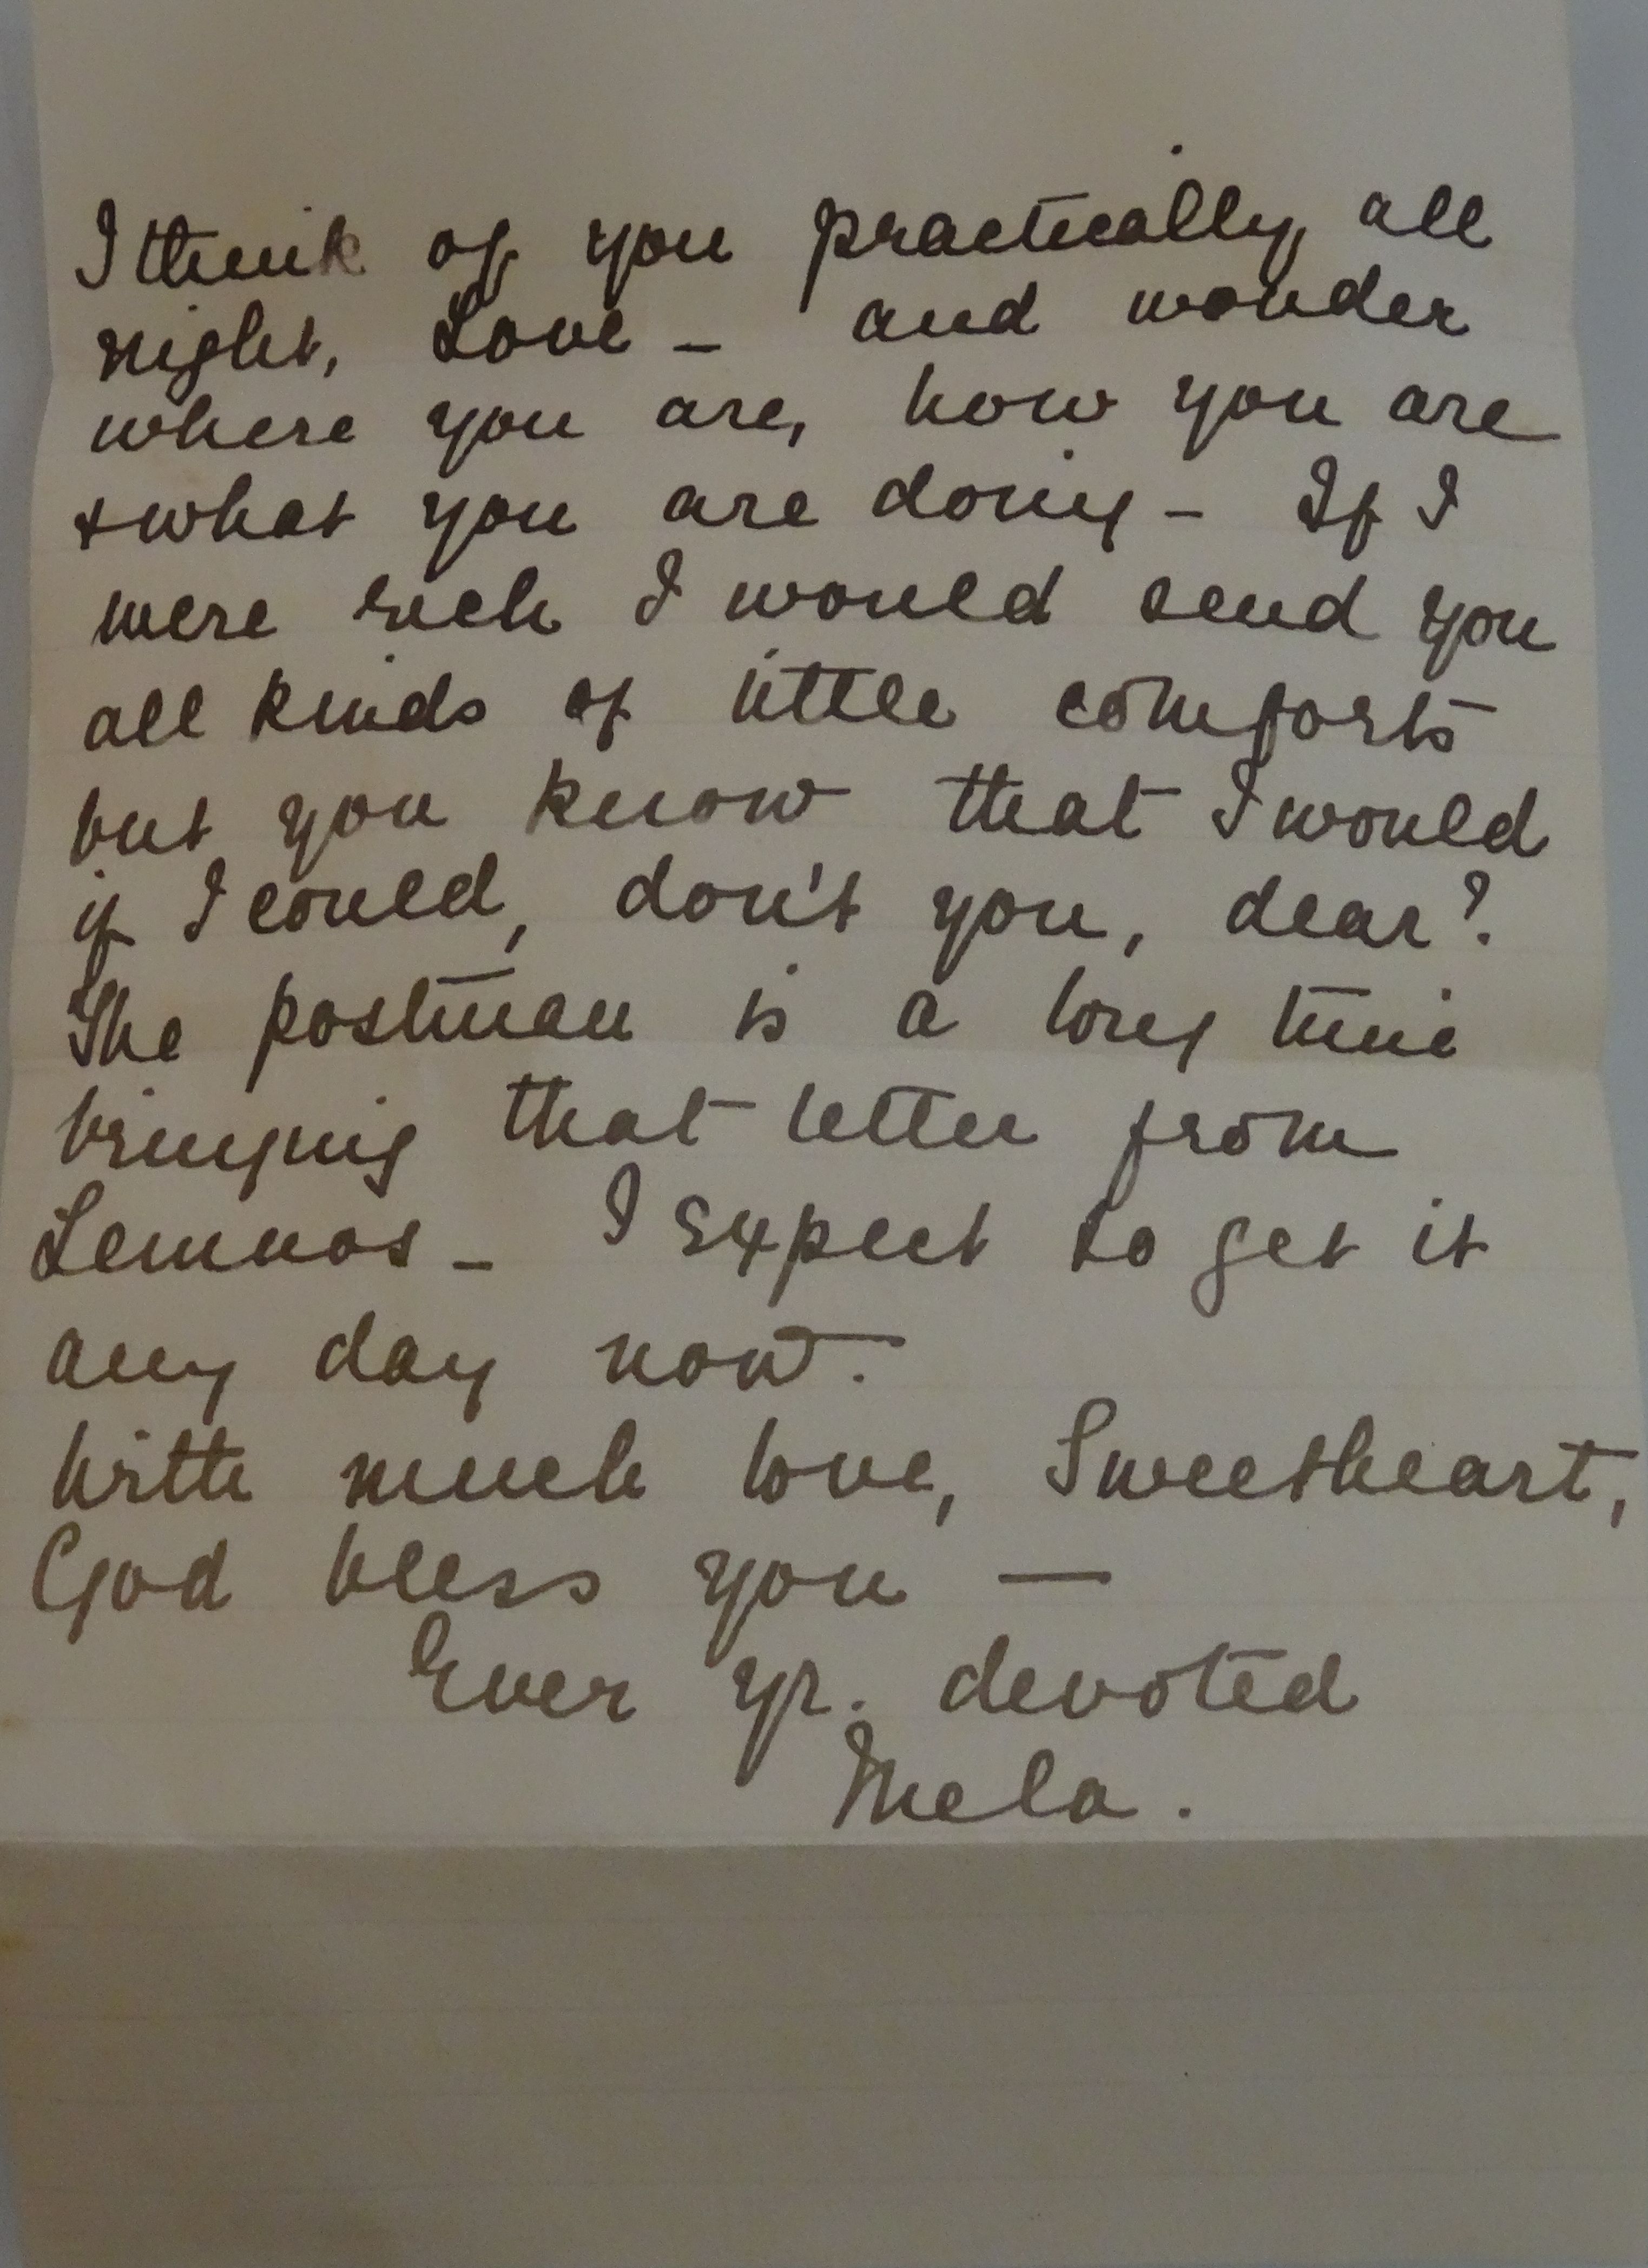 I think of you practically all
night, Love - and wonder
where you are, how you are
& what you are doing - If I
were rich I would send you
all kinds of little comforts
but you know that I would
if I could, don't you, dear?
The postman is a long time
bringing that letter from
Lemnos - I expect to get it
any day now.
With much love, Sweetheart,
God bless you —
Ever yr. devoted
Mela.